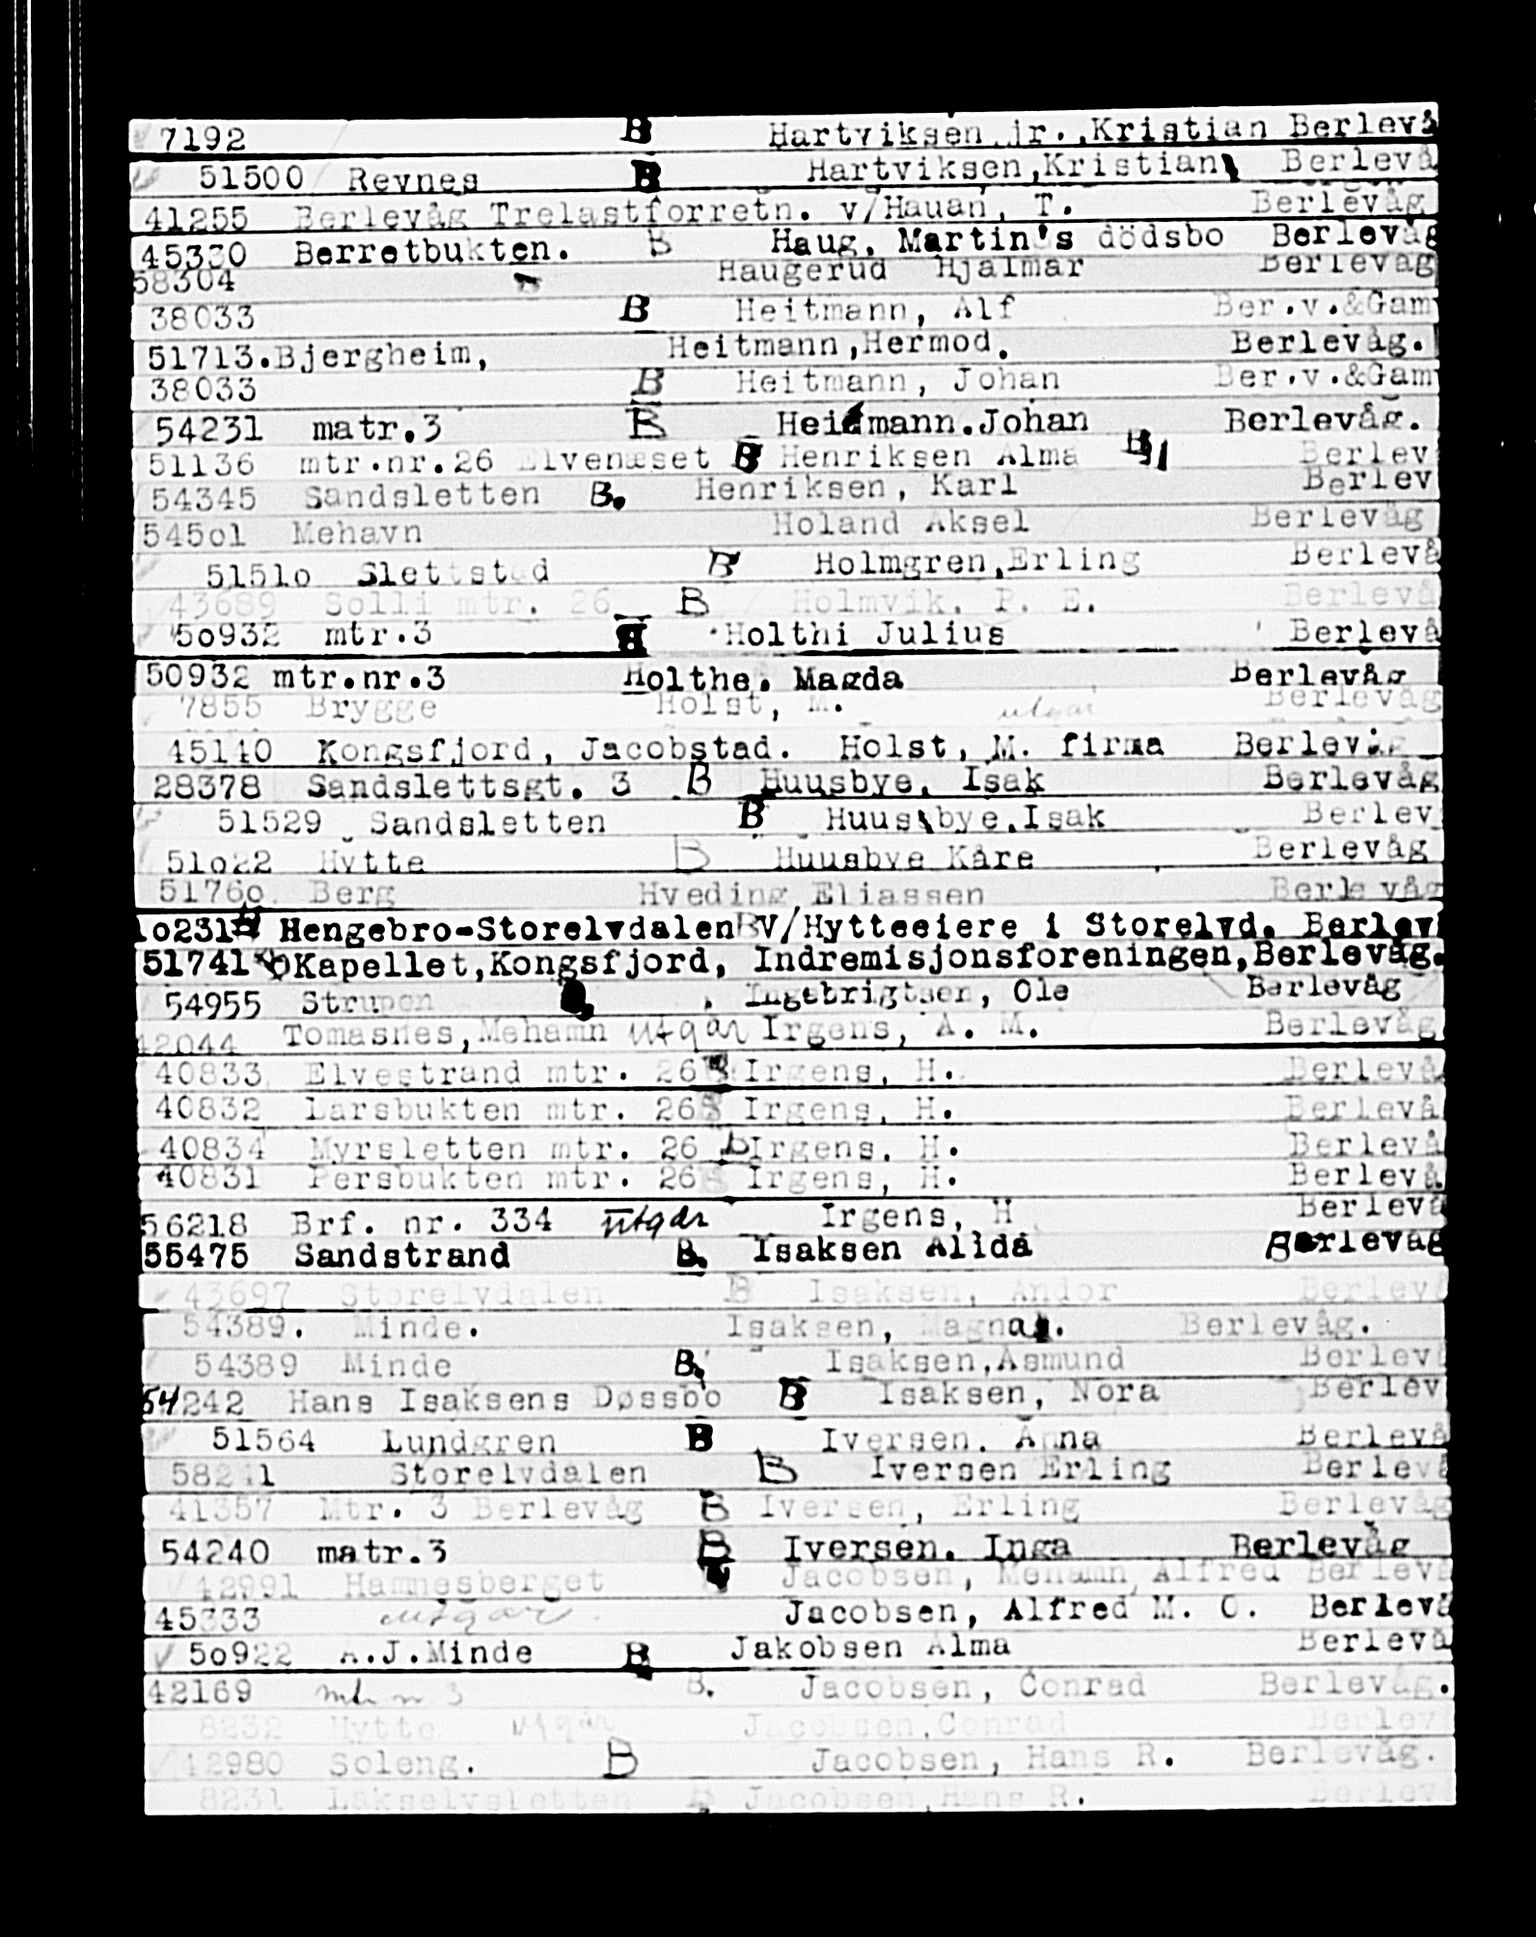 7192 B Hartviksen jr.,Kristian Berlevå
51500 Revnes B Hartviksen,Kristian Berlevå
41255 Berlevåg Trelastforretn. v/Hauan, T. Berlevåg
45330 Berretbukten. B Haug, Martin's dödsbo Berlevåg
58304 Haugerud Hjalmar Berlevåg
38033 B Heitmann, Alf Ber.v.&Gam
51713.Bjergheim, Heitmann,Hermod. Berlevåg.
38033 B Heitmann, Johan Ber.v.&Gam
54231 matr.3 B Heitmann.Johan Berlevåg.
51136 mtr.nr.26 Elvenæset B Henriksen Alma B Berlev
54345 Sandsletten B. Henriksen, Karl Berlev
545o1 Mehavn Holand Aksel Berlevåg
5151o Slettstad B Holmgren,Erling Berlevå
43689 Solli mtr. 26 B Holmvik, P. E. Berlevå
5o932 mtr.3 B Holthi Julius Berlevå
50932 mtr.nr.3 Holthe, Magda Berlevåg
7855 Brygge Holst, M. utgår Berlevåg
45140 Kongsfjord, Jacobstad. Holst, M. firma Berlevåg
28378 Sandslettsgt. 3 B Huusbye, Isak Berlevåg
51529 Sandsletten B Huusbye,Isak Berlev
51o22 Hytte B Huusbye Kåre Berlevåg
5176o Berg Hveding Eliassen Berlevåg
1o231 Hengebro-Storelvdalen B V/Hytteeiere i Storelvd. Berlev
51741 Kapellet,Kongsfjord, Indremisjonsforeningen,Berlevåg.
54955 Strupen Ingebrigtsen, Ole Berlevåg
42044 Tomasnes,Mehamn utgår Irgens, A. M. Berlevåg
40833 Elvestrand mtr. 26 Irgens, H. Berlevå
40832 Larsbukten mtr. 26 B Irgens, H. Berlevå
40834 Myrsletten mtr. 26 B Irgens, H. Berlevå
40831 Persbukten mtr. 26 B Irgens, H. Berlevå
56218 Brf. nr. 334 utgår Irgens, H Berlevå
55475 Sandstrand B. Isaksen Alida Berlevåg
43697 Storelvdalen B Isaksen, Andor Berlevå
54389. Minde. Isaksen, Magna. Berlevåg.
54389 Minde B. Isaksen,Asmund Berlev
54242 Hans Isaksens Døssbo B Isaksen, Nora Berlev
51564 Lundgren B Iversen, Anna Berlevå
58211 Storelvdalen B Iversen Erling Berlevå
41357 Mtr. 3 Berlevåg B Iversen, Erling Berlevåg
54240 matr.3 B Iversen, Inga Berlevåg
42991 Hamnesberget Jacobsen, Mehamn Alfred Berlevå
45333 utgår. Jacobsen, Alfred M. O. Berlevå
5o922 A.J.Minde B Jakobsen Alma Berlevå
42169 mtr nr 3 B. Jacobsen, Conrad Berlevåg.
8232 Hytte utgår Jacobsen,Conrad Berlev
42980 Soleng. B Jacobsen, Hans R. Berlevåg.
8231 Lakselvsletten B Jacobsen,Hans R. Berlevå